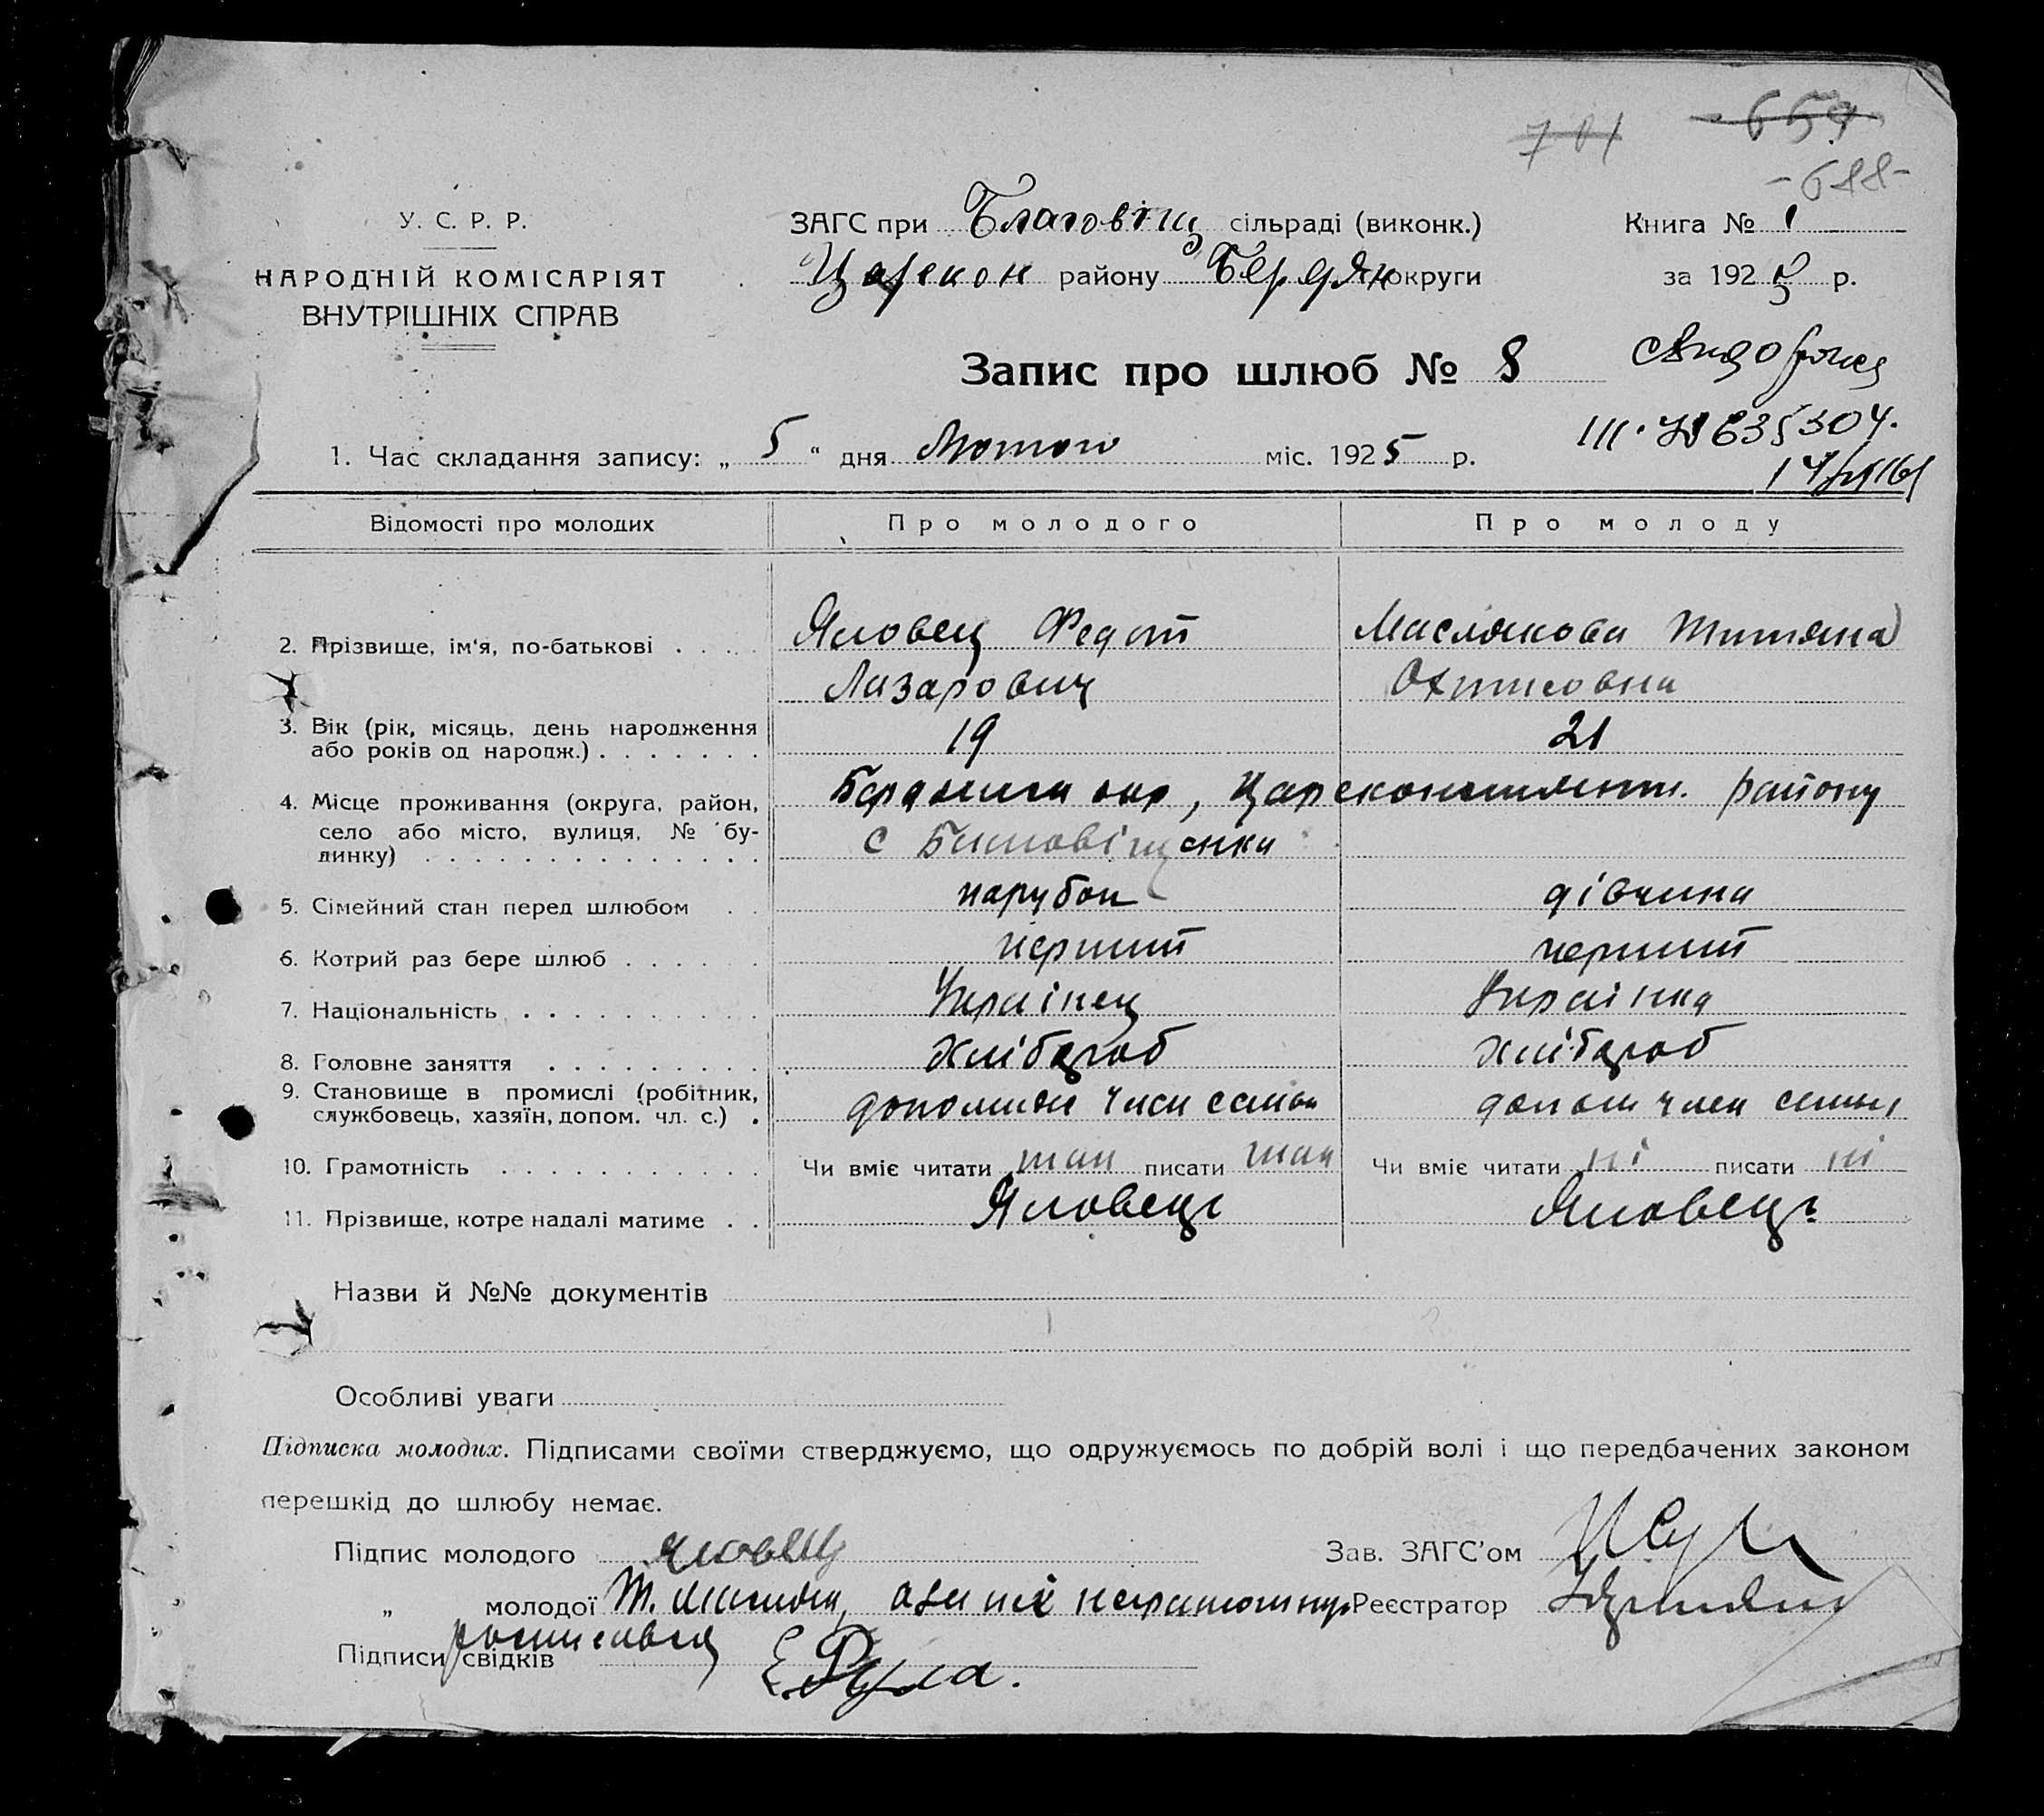 701 659
-688-
У. С. Р. Р. ЗАГС при Благовіщ сільраді (виконк.) Книга № 1
НАРОДНІЙ КОМІСАРІЯТ Царекон району Бердян округи за 1925 р.
ВНУТРІШНІХ СПРАВ
Запис про шлюб № 8
1. Час складання запису: „ 5 “ дня Лютого міс. 1925 р.
Відомості про молодих Про молодого Про молоду
2. Прізвище, ім‘я, по-батькові . . . . Яловец Федот Маслякова Титяна
Лазарович
3. Вік (рік, місяць, день народження 19 21
або років од народж.) . . . . . . .
4. Місце проживання (округа, район, окр, Цареконстянти. району
село або місто, вулиця, № бу- с
динку) . . . . . . . . . . . . . .
5. Сімейний стан перед шлюбом . . парубок дівчина
6. Котрий раз бере шлюб . . . . . . перший перший
7. Національність . . . . . . . . . . Украінец Украінка
8. Головне заняття . . . . . . . . . . хлібороб хлібороб
9. Становище в промислі (робітник,
службовець, хазяїн, допом. чл. с.) . член член
10. Грамотність . . . . . . . . . . . . Чи вміє читати так писати так Чи вміє читати ні писати ні
11. Прізвище, котре надалі матиме . . Яловець Яловець
Назви й №№ документів
Особливі уваги
Підписка молодих. Підписами своїми стверджуємо, що одружуємось по добрій волі і що передбачених законом
перешкід до шлюбу немає.
Підпис молодого Яловец Зав. ЗАГС’ом
„ молодої Т. Реєстратор
Підписи свідків